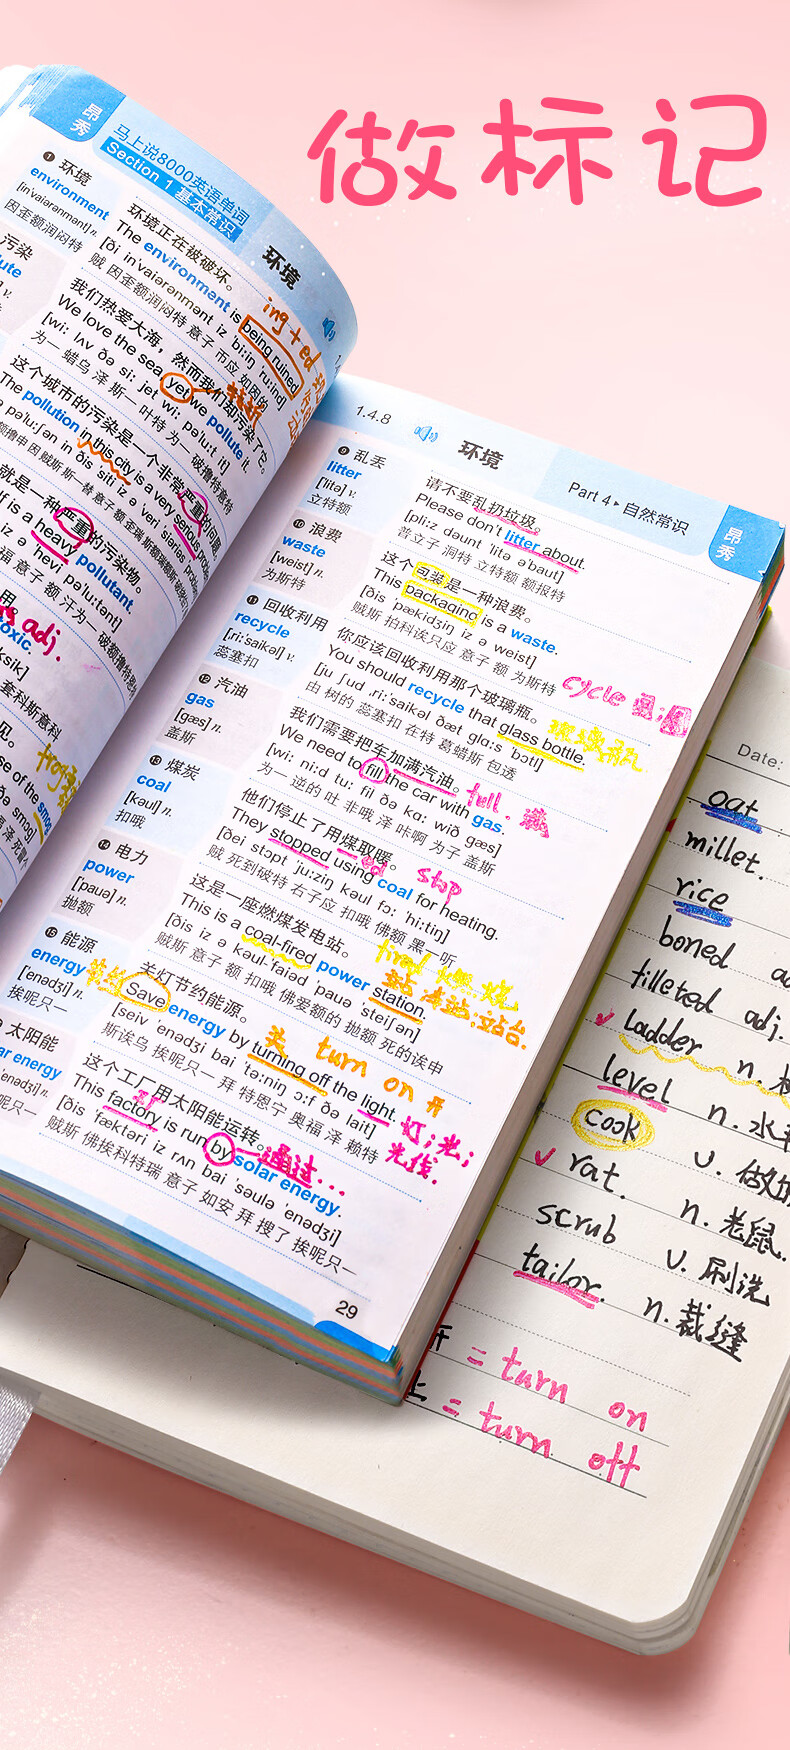 做标记
昂秀
马上说8000英语单词
Section 1 基本常识
环境
❶ 环境
environment
[in'vaiərənmənt] n.
因歪额润闷特
环境正在被破坏。
The environment is being ruined
[ði in'vaiərənmənt iz 'bi:iŋ ru:ind]
贼 因歪额润闷特 意子 币应 如因的
ing + ed
污染
我们热爱大海，然而我们却污染了它。
We love the sea yet we pollute it.
[wi: lʌv ðə si: jet wi: pə'lu:t it]
为一 蜡乌 泽 斯一 叶特 为一 破撸特 意特
这个城市的污染是一个非常严重的问题。
The pollution in this city is a very serious
就是一种严重的污染物。
is a heavy pollutant.
adj.
1.4.8
环境
Part 4▸自然常识
昂秀
❾ 乱丢
litter
['litə] v.
立特额
请不要乱扔垃圾。
Please don't litter about.
[pli:z dəunt 'litə ə'baut]
普立子 洞特 立特额 额报特
❿ 浪费
waste
[weist] n.
为斯特
这个包装是一种浪费。
This packaging is a waste.
[ðis 'pækidʒiŋ iz ə weist]
贼斯 拍科诶只应 意子 额 为斯特
⓫ 回收利用
recycle
[ˌri:'saikəl] v.
蕊塞扣
你应该回收利用那个玻璃瓶。
You should recycle that glass bottle.
[ju ʃud ˌri:'saikəl ðæt glɑ:s 'bɔtl]
由 树的 蕊塞扣 在特 葛蜡斯 包透
cycle
玻璃瓶
⓬ 汽油
gas
[gæs] n.
盖斯
我们需要把车加满汽油。
We need to fill the car with gas.
[wi: ni:d tu: fil ðə kɑ: wið gæs]
为一 逆的 吐 非哦 泽 咔啊 为子 盖斯
full. 满
⓭ 煤炭
coal
[kəul] n.
扣哦
他们停止了用煤取暖。
They stopped using coal for heating.
[ðei stɔpt ju:ziŋ kəul fɔ: 'hi:tiŋ]
贼 死到破特 右子应 扣哦 佛额 黑一听
ed
stop
⓮ 电力
power
['pauə] n.
抛额
这是一座燃煤发电站。
This is a coal-fired power station.
[ðis iz ə kəul-'faiəd 'pauə 'steiʃən]
贼斯 意子 额 扣哦 佛爱额的 抛额 死的诶申
fired 燃烧
站;车站;站台.
⓯ 能源
energy
['enədʒi] n.
挨呢只一
节约
关灯节约能源。
Save energy by turning off the light.
[seiv 'enədʒi bai 'tə:niŋ ɔ:f ðə lait]
斯诶乌 挨呢只一 拜 特恩宁 奥福 泽 赖特
关 turn on 开
灯;光;
光线.
太阳能
solar energy
这个工厂用太阳能运转。
This factory is run by solar energy.
[ðis 'fæktəri iz rʌn bai 'səulə 'enədʒi]
贼斯 佛挨科特瑞 意子 如安 拜 搜了 挨呢只一
工厂
通过...
29
Date:
oat
millet.
rice
boned
filleted adj.
ladder n.
level n. 水
cook v. 做
rat. n. 老鼠.
scrub v. 刷洗
tailor. n. 裁缝
开 = turn on
= turn off